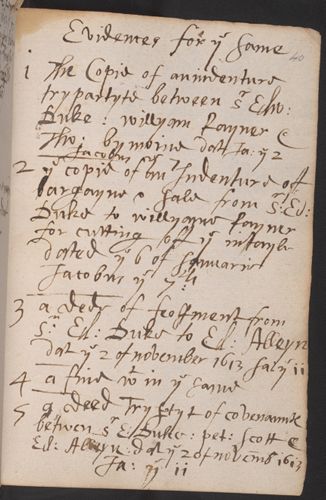 Evidences for yͤ same
40
1 The Copie of an indenture
trypartyte between Sʳ Edw:
Duke: willyam Rayner &
Tho: by
dat Ja: yͤ 2
Jacobus
2 yͤ copie of an Indenture off
bargayne & sale from Sʳ: Ed:
Duke to willyame Rayner
for cutting off yͤ intayle
dated yͤ 6 of Januarie
Jacobus yͤ 4:
3 a deed of feoffment from
Sʳ Ed: Duke to Ed: Alleyn
dat yͤ 2 of november 1613 Ja: yͤ 11
4 a fine wᵗʰ in yͤ same
5 a deed Trypartyt of covenannts
betwen Sʳ E: Duke: pet: Scott &
Ed: Alleyn: dat yͤ 2 of novemb 1613
Ja: yͤ 11